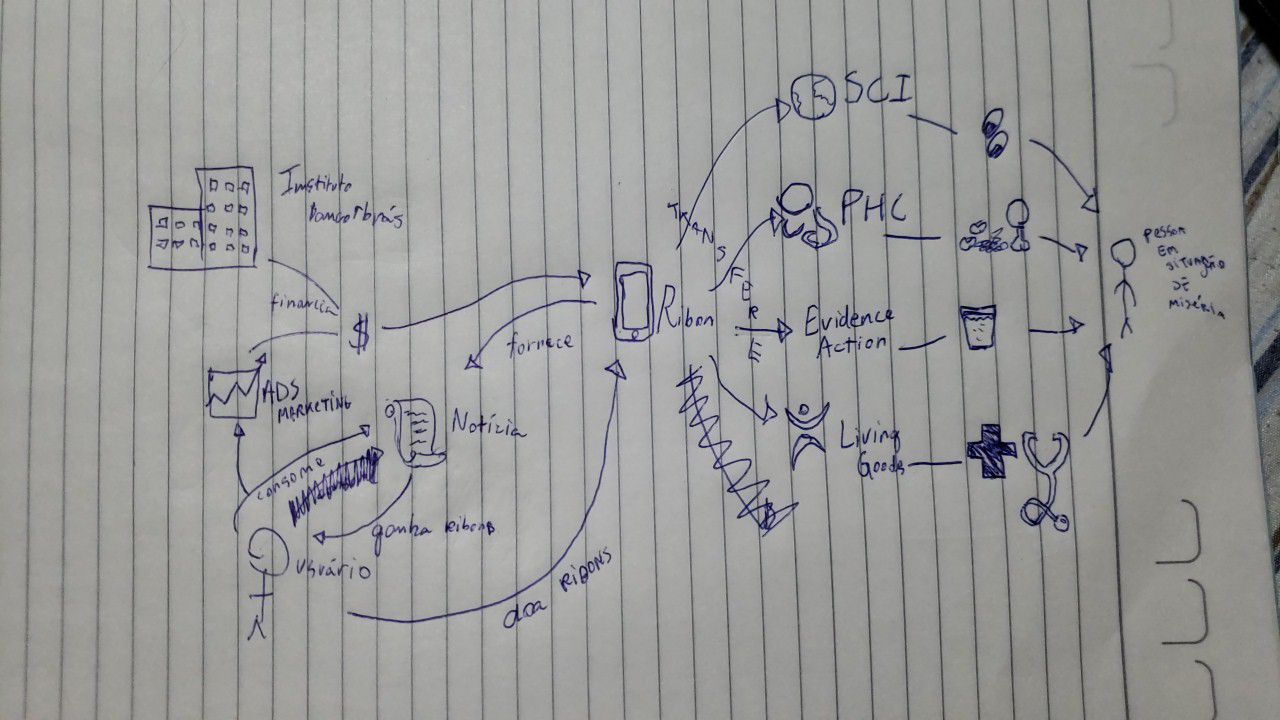 Instituto
Bancorbrás
financia
$
ADS
MARKETING
fornece
Notícia
consome
ganha ribons
usuário
doa RIBONS
Ribon
TRANSFERE
SCI
PHC
Evidence
Action
Living
Goods
pessoa
EM
situação
DE
miséria